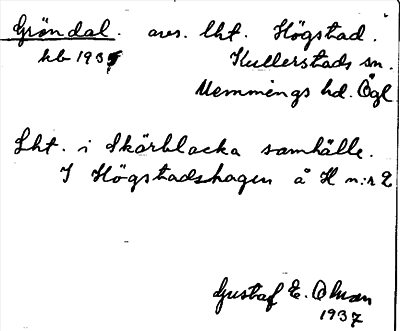 Gröndal. avs. lht. Högstad.
hb 1935 Kullerstads sn.
Memmings hd. Ögl
Lht. i Skärblacka samhälle.
I Högstadshagen å H n:r 2
Gustaf E. Ohman
1937